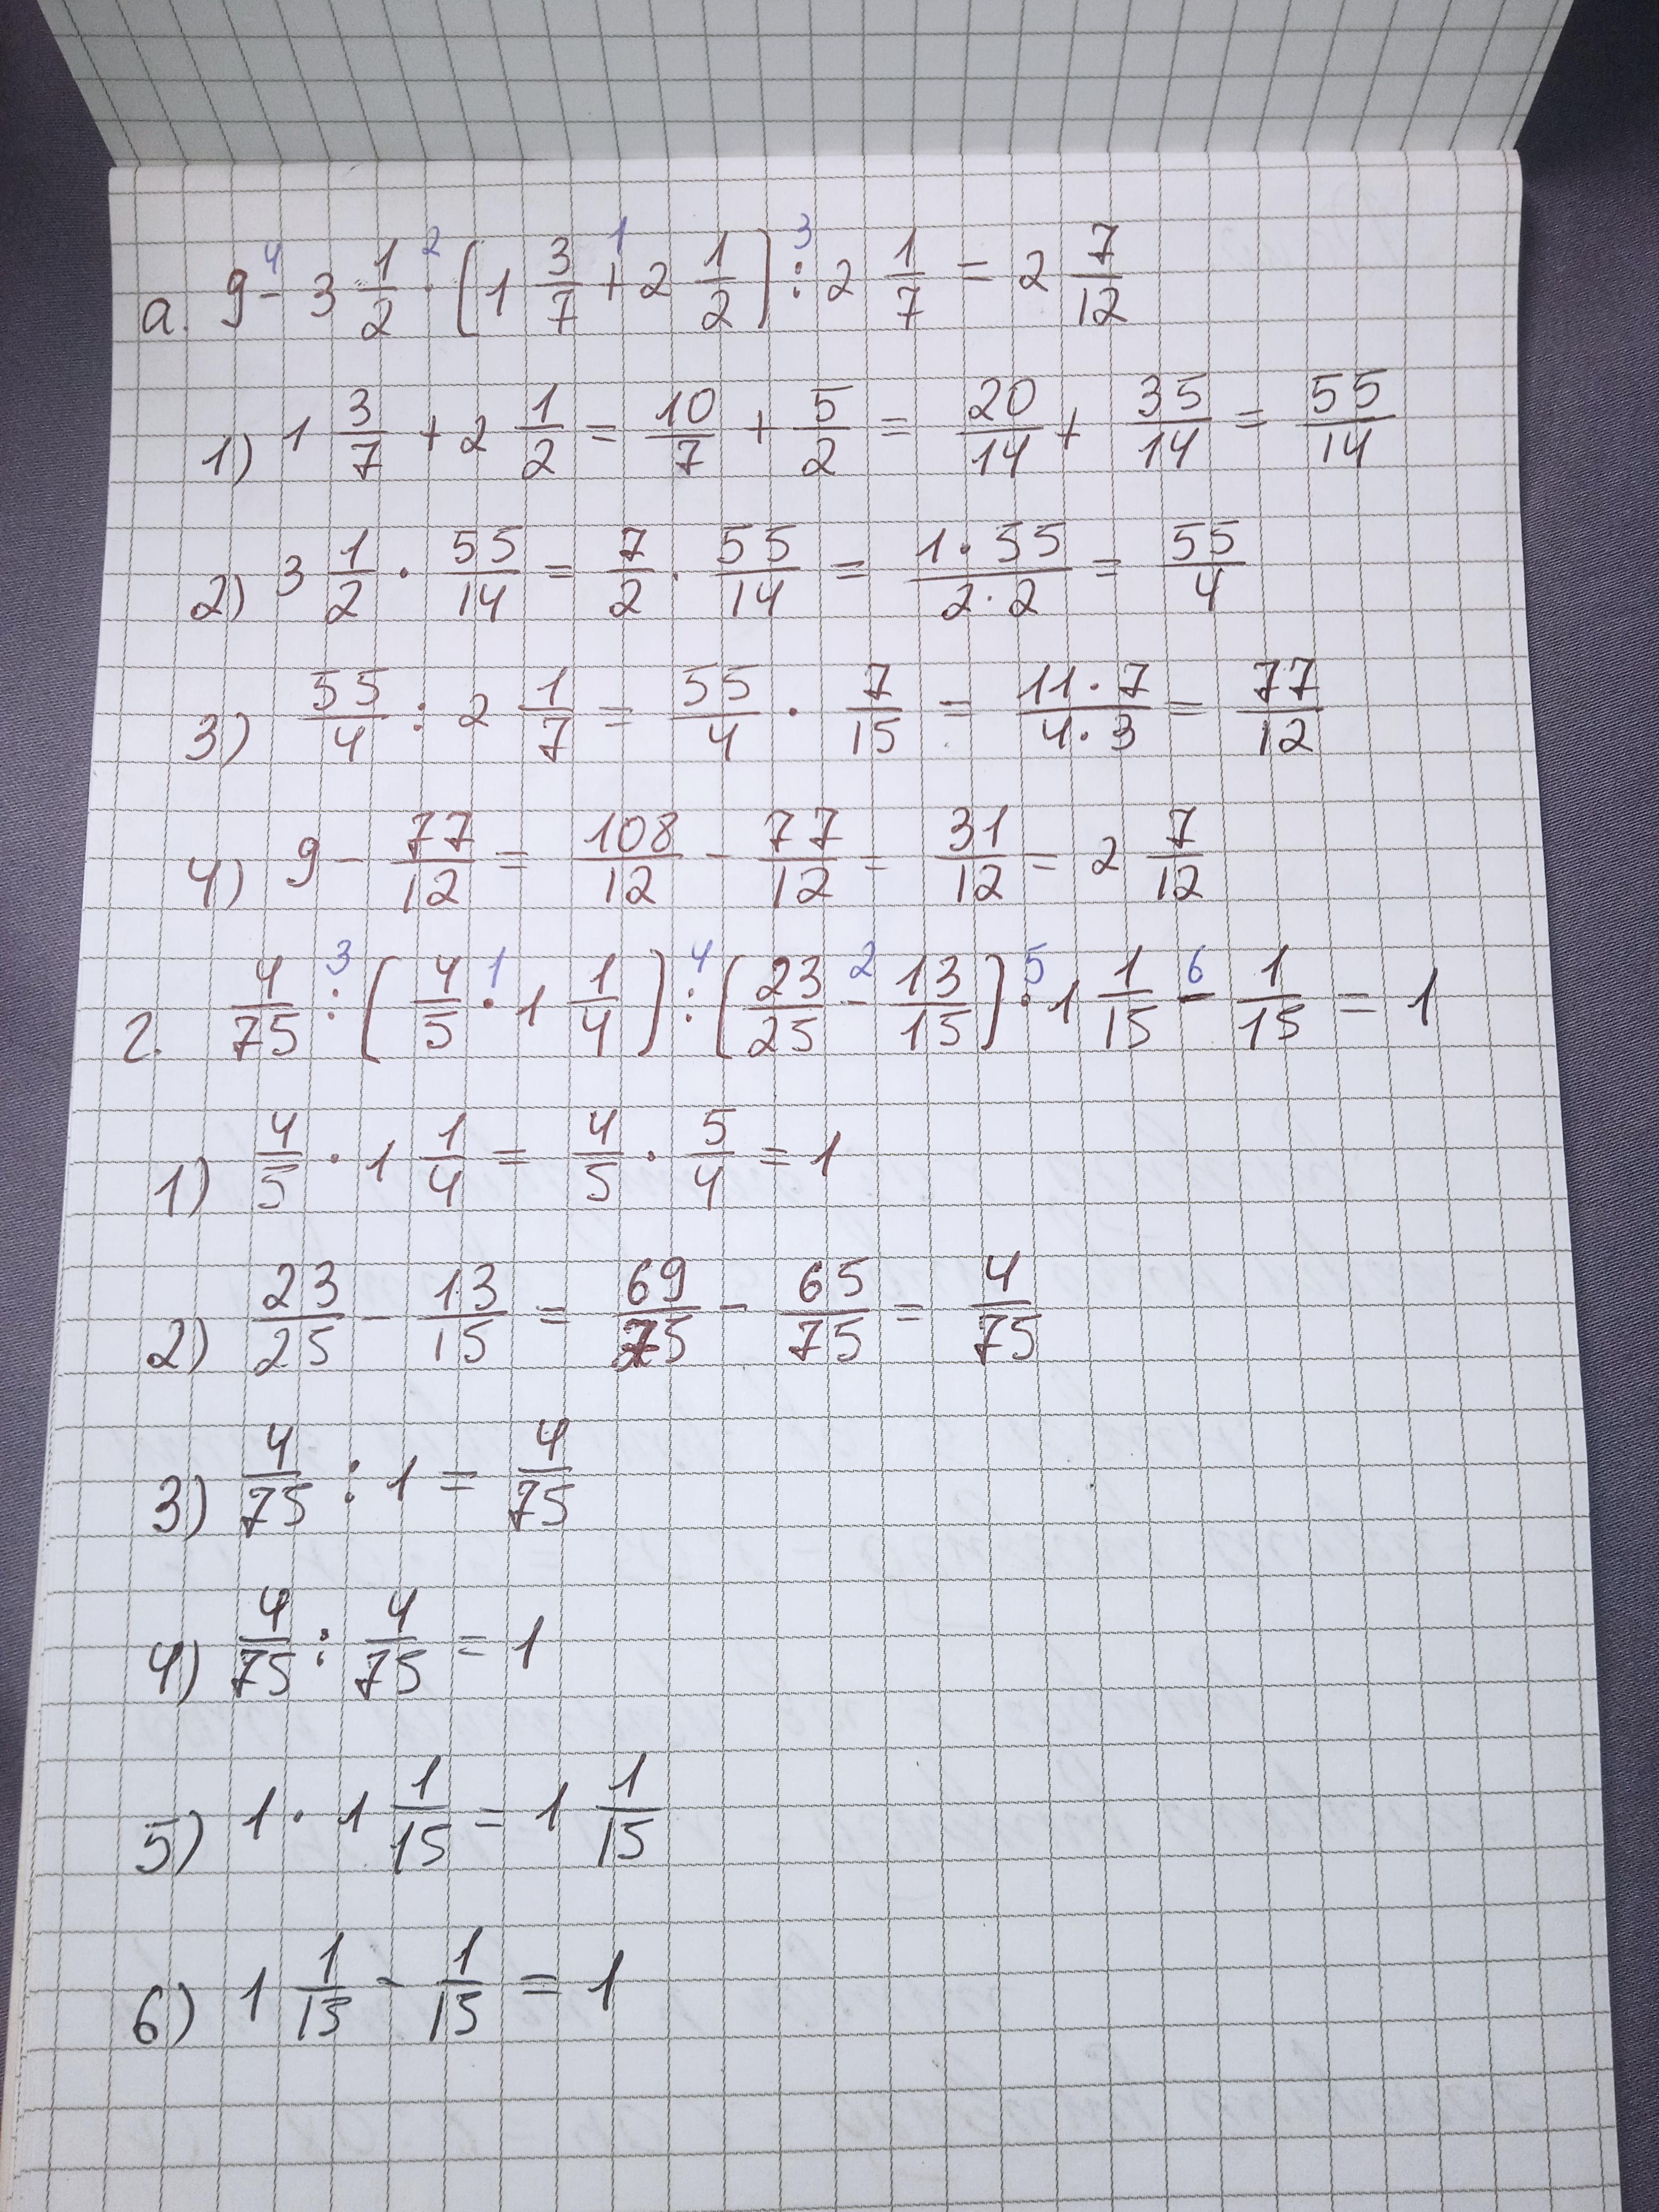 а. 9 - 3 1/2 · (1 3/7 + 2 1/2) : 2 1/7 = 2 7/12
1) 1 3/7 + 2 1/2 = 10/7 + 5/2 = 20/14 + 35/14 = 55/14
2) 3 1/2 · 55/14 = 7/2 · 55/14 = 1·55/2·2 = 55/4
3) 55/4 : 2 1/7 = 55/4 · 7/15 = 11·7/4·3 = 77/12
4) 9 - 77/12 = 108/12 - 77/12 = 31/12 = 2 7/12
г. 4/75 : (4/5 · 1 1/4) : (23/25 - 13/15) · 1 1/15 - 1/15 = 1
1) 4/5 · 1 1/4 = 4/5 · 5/4 = 1
2) 23/25 - 13/15 = 69/75 - 65/75 = 4/75
3) 4/75 : 1 = 4/75
4) 4/75 : 4/75 = 1
5) 1 · 1 1/15 = 1 1/15
6) 1 1/15 - 1/15 = 1